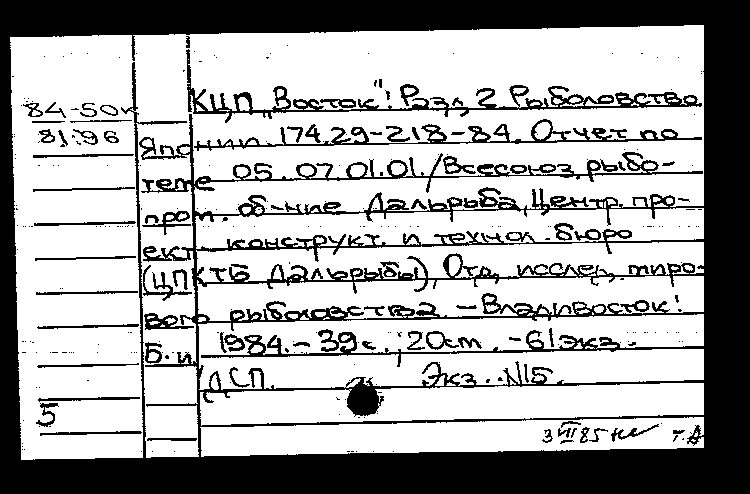 84-50к КЦП „Восток": Разд. 2 Рыболовство
81:96 Японии. 174.29-218-84. Отчет по
теме 05.07.01.01./Всесоюз. рыбо-
пром. об-ние Дальрыба, Центр. про-
ект.-конструкт. и технол. бюро
(ЦПКТБ Дальрыбы), Отд. исслед. миро-
вого рыболовства. - Владивосток:
Б.и., 1984. - 39с.; 20см. - 61экз.
ДСП. Экз. N15.
5
3 VIII 85 т. А